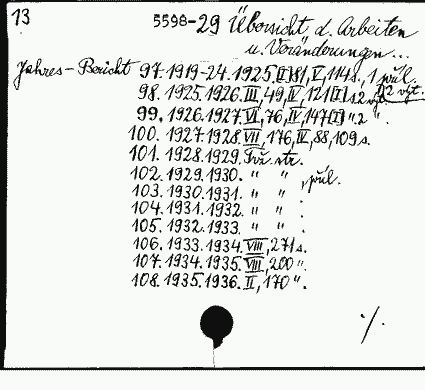 13 5598-29 Übersicht d. Arbeiten
u. Veränderungen...
Jahres-Bericht 97. 1919-24. 1925. (I) 81, V, 114 s., 1 příl.
98. 1925. 1926. III, 49, IV, 121 (I) s. 2 výt.
99. 1926. 1927. VI, 76, IV, 147 (I) " 2 ".
100. 1927. 1928. VII, 176, IV, 88, 109 s.
101. 1928. 1929. Též str.
102. 1929. 1930. " " , příl.
103. 1930. 1931. " " .
104. 1931. 1932. " " .
105. 1932. 1933. " " .
106. 1933. 1934. VIII, 271 s.
107. 1934. 1935. VIII, 200 ".
108. 1935. 1936. II, 170 ".
./.